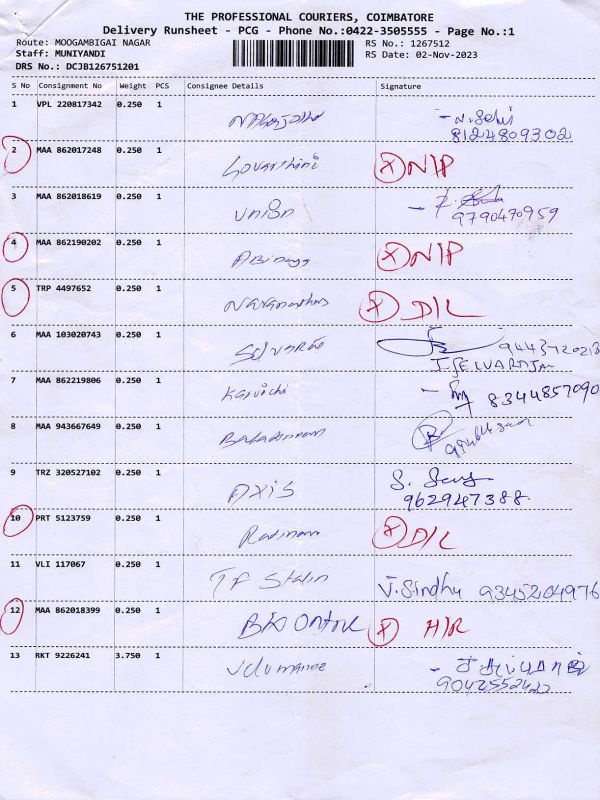 THE PROFESSIONAL COURIERS, COIMBATORE
Delivery Runsheet - PCG - Phone No.:0422-3505555 - Page No.:1
Route: MOOGAMBIGAI NAGAR RS No.: 1267512
Staff: MUNIYANDI RS Date: 02-Nov-2023
DRS No.: DCJB126751201
S No Consignment No Weight PCS Consignee Details Signature
1 VPL 220817342 0.250 1
8124809302
2 MAA 862017248 0.250 1 X N/P
3 MAA 862018619 0.250 1 Union
9790470959
4 MAA 862190202 0.250 1 X N/P
5 TRP 4497652 0.250 1 X D/L
6 MAA 103020743 0.250 1
7 MAA 862219806 0.250 1 8344857090
8 MAA 943667649 0.250 1
9 TRZ 320527102 0.250 1 AXIS
962947388
10 PRT 5123759 0.250 1 X D/L
11 VLI 117067 0.250 1 TF Stalin V. Sindhu 9345204976
12 MAA 862018399 0.250 1 X H/R
13 RKT 9226241 3.750 1